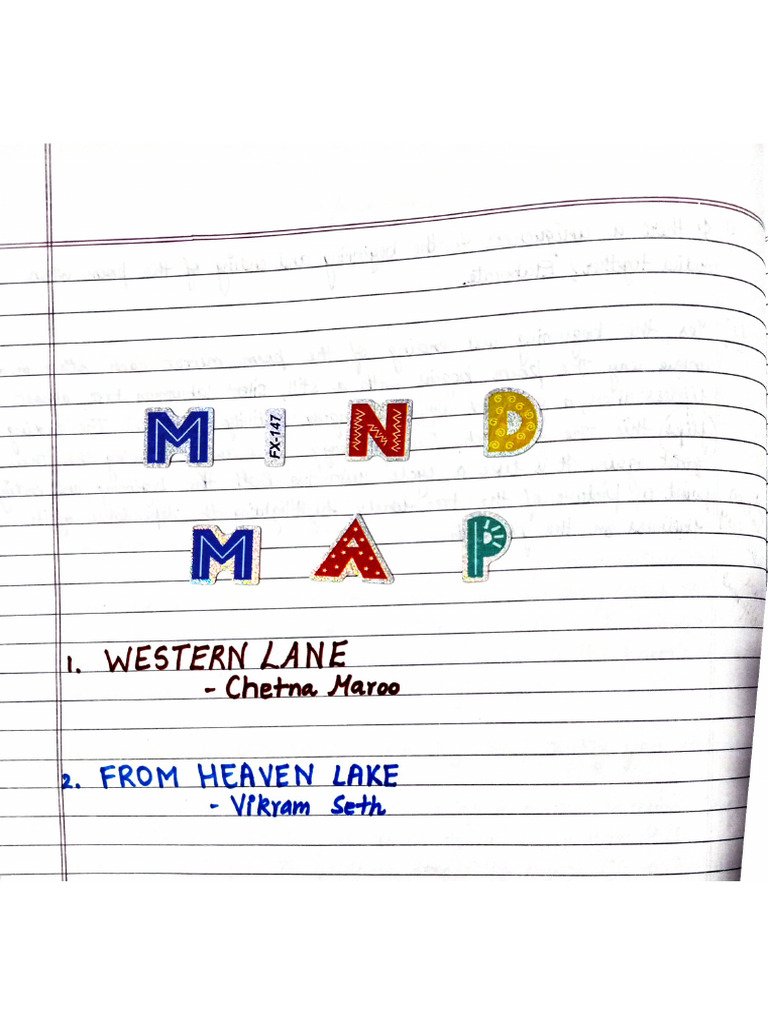 MIND
FX-147
MAP
1. WESTERN LANE
- Chetna Maroo
2. FROM HEAVEN LAKE
- Vikram Seth